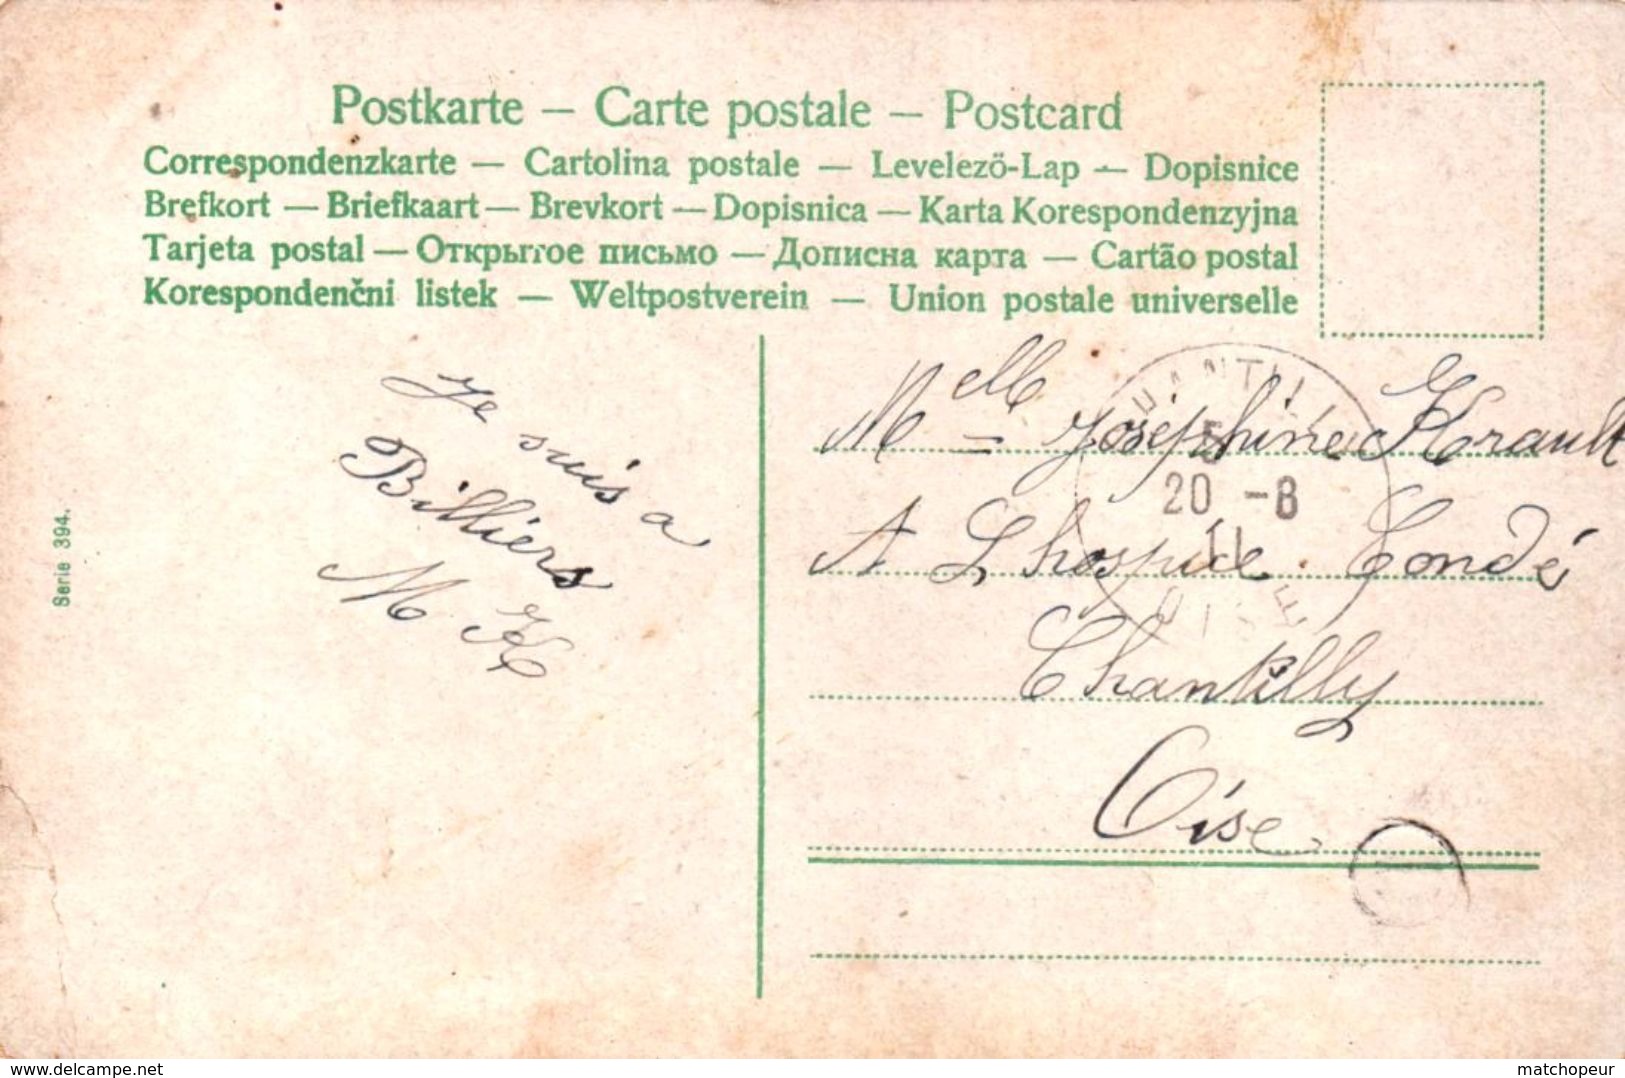 Postkarte – Carte postale – Postcard
Correspondenzkarte — Cartolina postale — Levelezö-Lap — Dopisnice
Brefkort — Briefkaart — Brevkort — Dopisnica — Karta Korespondenzyjna
Tarjeta postal — Открытое письмо — Дописна карта — Cartão postal
Korespondenčni listek — Weltpostverein — Union postale universelle
Serie 394.
Je suis a
Billiers
M K
Melle Joséphine
A Lhospice Condé
Chantilly
Oise
20 -8
11
OISE
www.delcampe.net
matchopeur